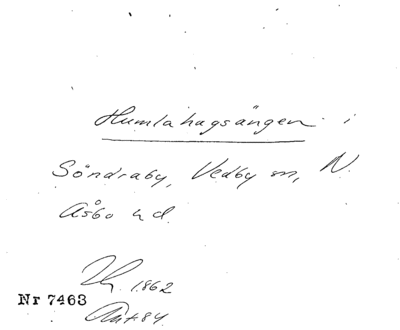 Humlahagsängen i
Söndraby, Vedby sn, N.
Åsbo hd.
1862
Nr 7463